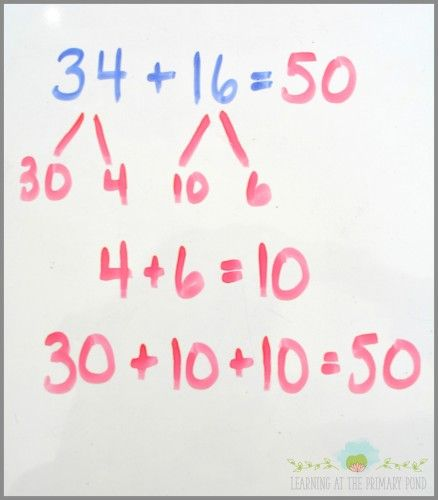 34 + 16 = 50
30 4 10 6
4 + 6 = 10
30 + 10 + 10 = 50
LEARNING AT THE PRIMARY POND